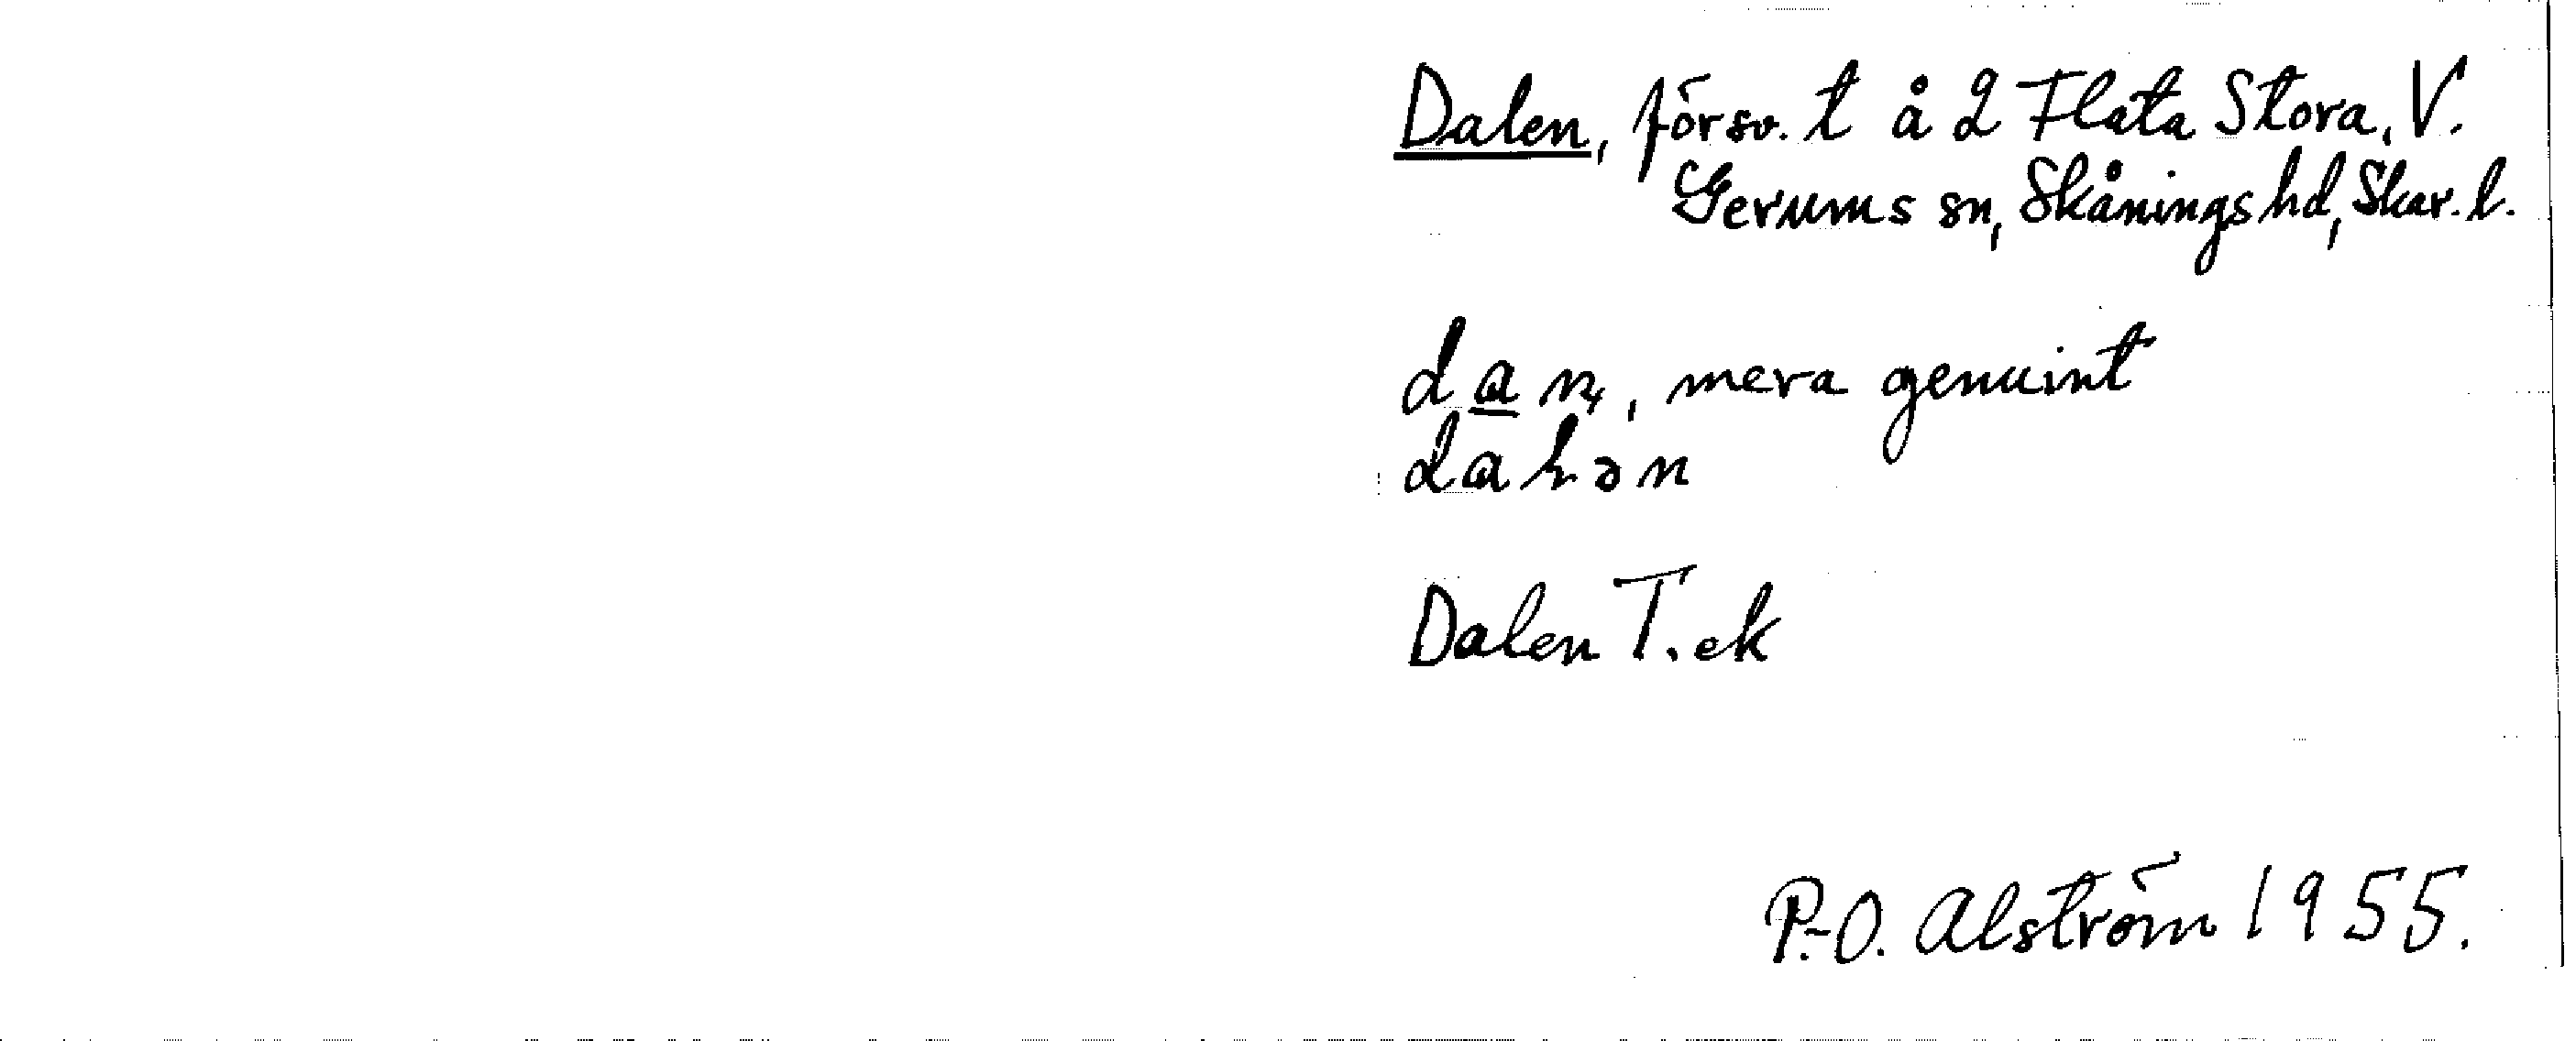 Dalen, försv. t å 2 Flata Stora, V.
Gerums sn, Skånings hd, Skar. l.
dan, mera genuint
Dalen T. ek
P.-O. Alström 1955.